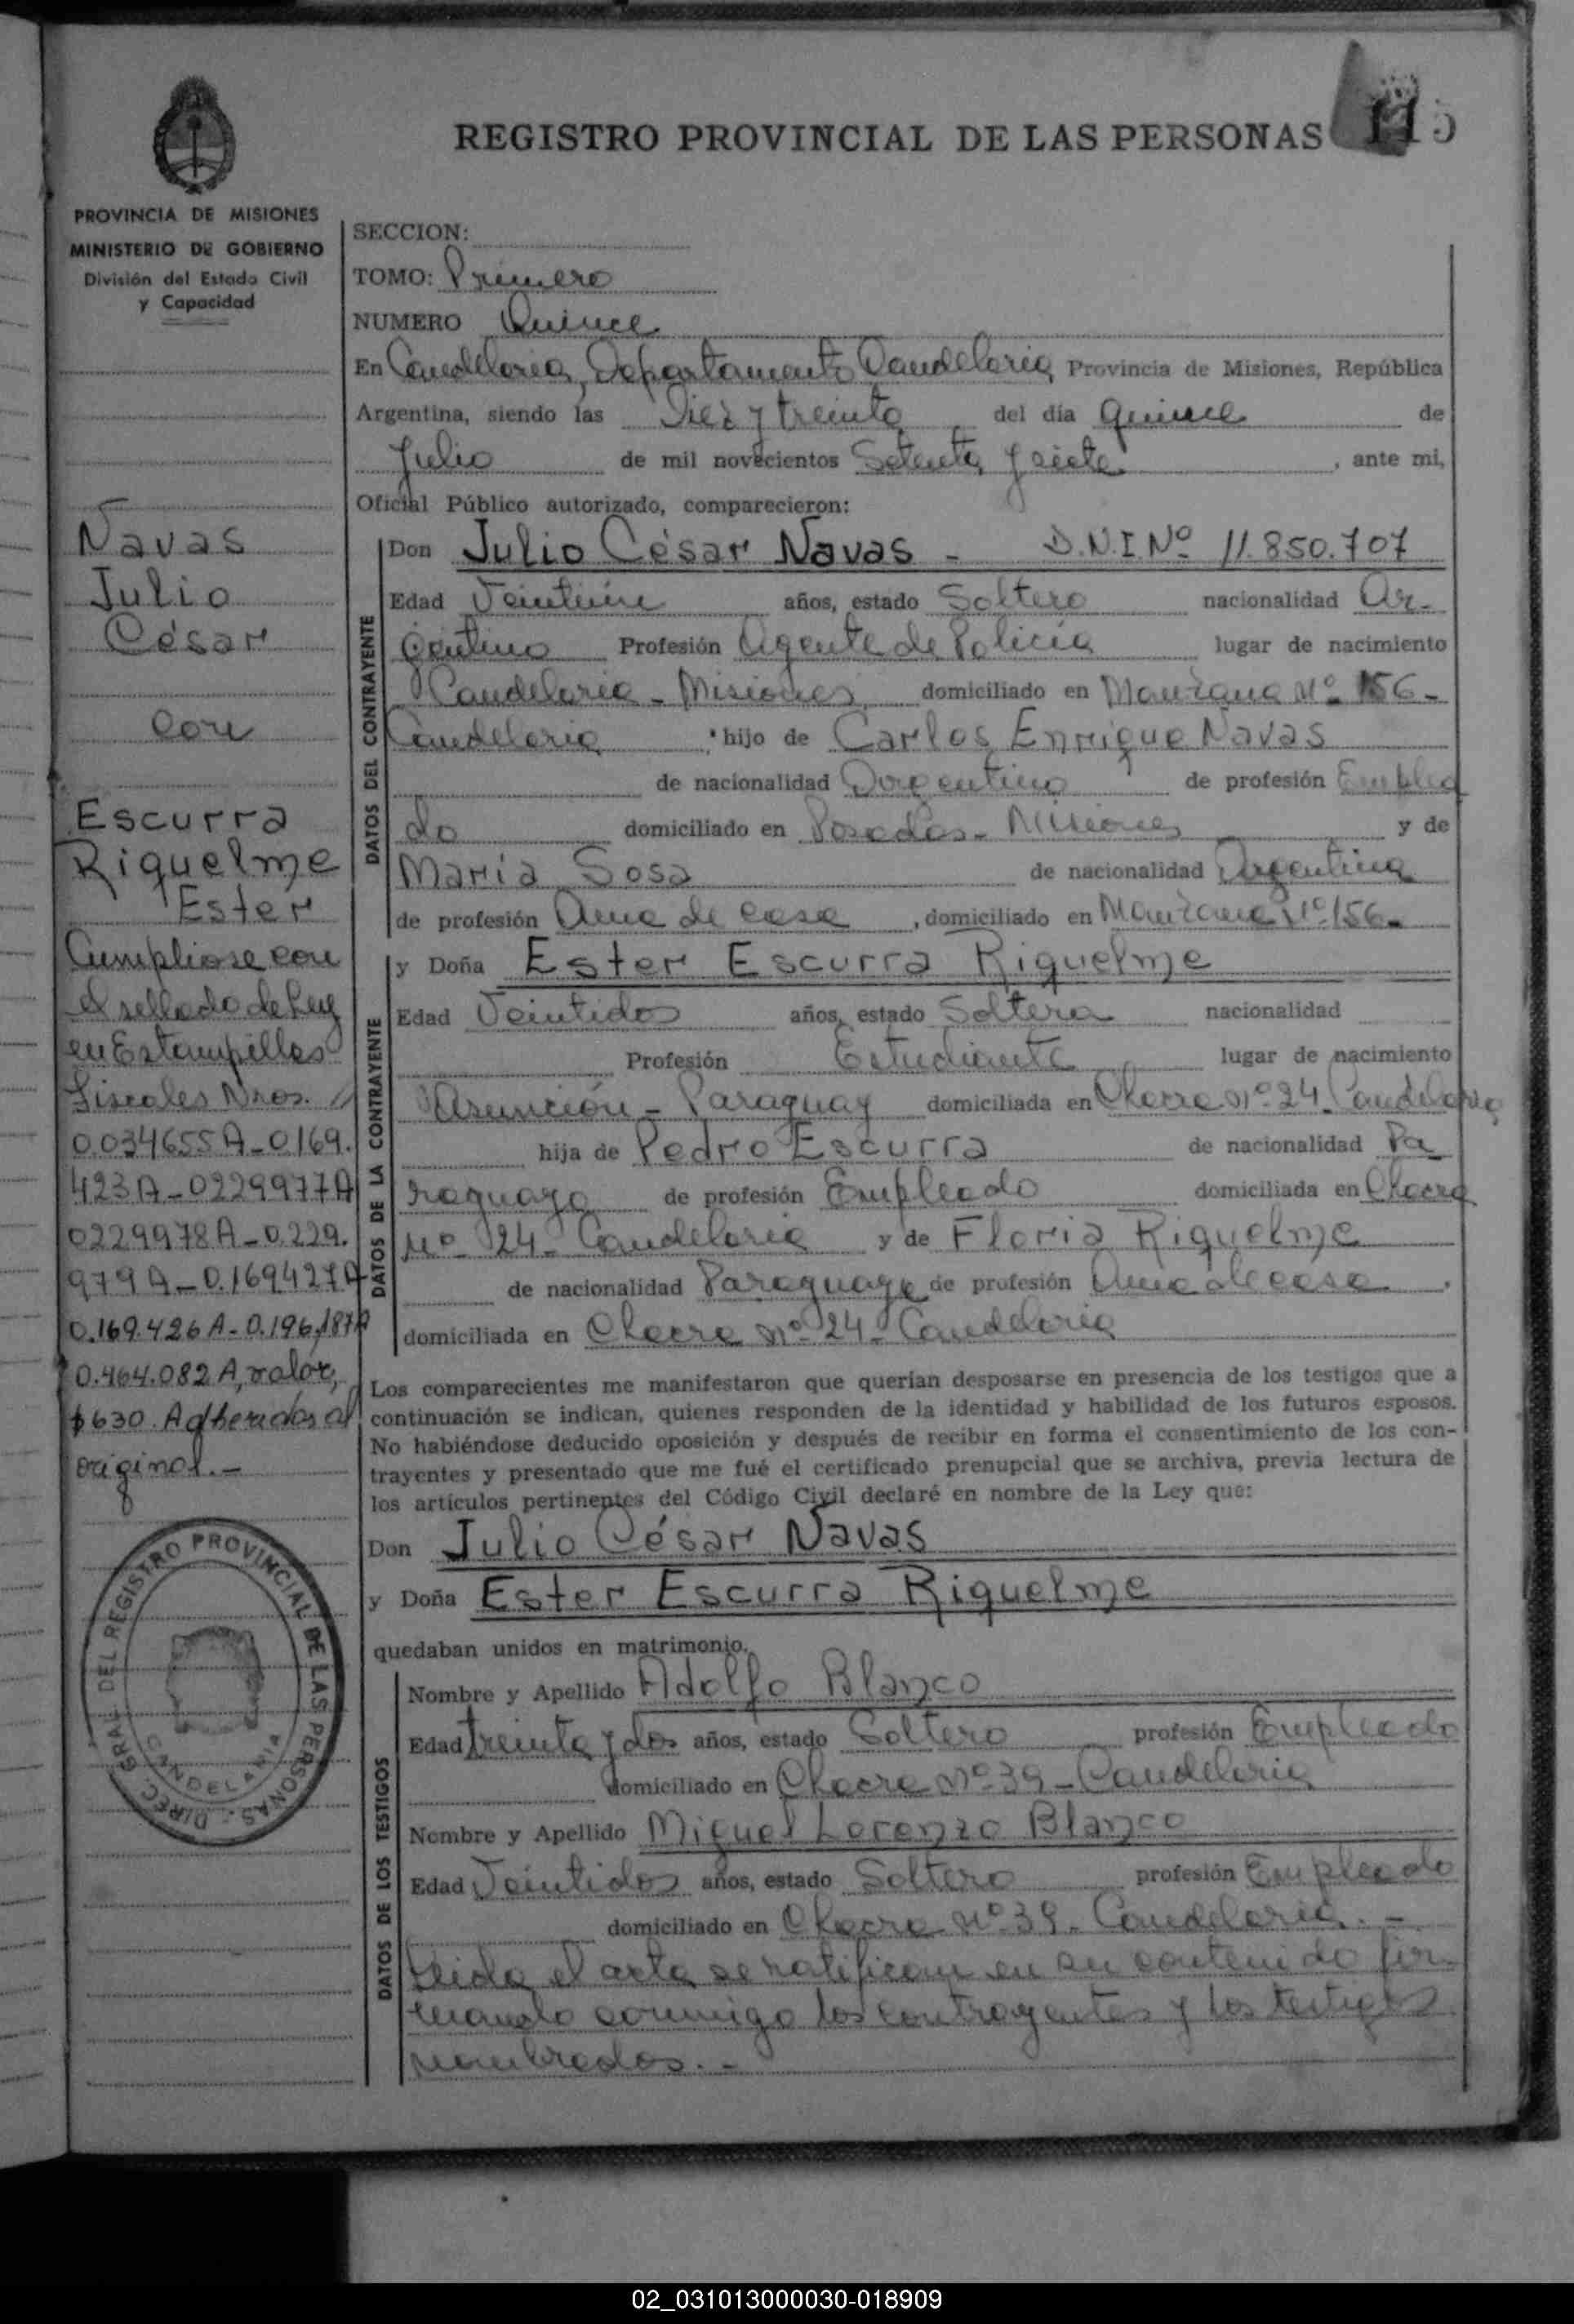 REGISTRO PROVINCIAL DE LAS PERSONAS
115
PROVINCIA DE MISIONES
MINISTERIO DE GOBIERNO
División del Estado Civil
y Capacidad
SECCION:
TOMO: Primero
NUMERO Quince
En Candelaria, Departamento Candelaria Provincia de Misiones, República
Argentina, siendo las Diez y treinta del día quince de
Julio de mil novecientos Setenta y siete, ante mi,
Oficial Público autorizado, comparecieron:
Navas
Julio
César
con
Escurra
Riquelme
Ester
Cumpliose con
el sellado de Ley
en Estampillas
Fiscales Nros.
0.034655A-0169.
423A-0229977A
0229978A-0.229.
979A-0.169427A
0.169.426A-0.196.187A
0.464.082 A, valor,
$630. Adheridos al
original.-
DATOS DEL CONTRAYENTE
Don Julio César Navas - D.N.I. Nº 11.850.707
Edad años, estado Soltero nacionalidad Ar-
gentino Profesión Agente de Policía lugar de nacimiento
Candelaria - Misiones domiciliado en Manzana Nº 156-
Candelaria, hijo de Carlos Enrique Navas
de nacionalidad Argentino de profesión Emplea
do domiciliado en Posadas - Misiones y de
María Sosa de nacionalidad Argentina
de profesión Ama de casa, domiciliado en Manzana Nº 156-
DATOS DE LA CONTRAYENTE
y Doña Ester Escurra Riquelme
Edad Veintidos años, estado Soltera nacionalidad
Profesión Estudiante lugar de nacimiento
Asunción - Paraguay domiciliada en Chacra Nº 24 Candelaria
hija de Pedro Escurra de nacionalidad Pa
raguaya de profesión Empleado domiciliada en Chacra
Nº 24 - Candelaria y de Floria Riquelme
de nacionalidad Paraguaya de profesión Ama de casa.
domiciliada en Chacra Nº 24 - Candelaria
Los comparecientes me manifestaron que querían desposarse en presencia de los testigos que a
continuación se indican, quienes responden de la identidad y habilidad de los futuros esposos.
No habiéndose deducido oposición y después de recibir en forma el consentimiento de los con-
trayentes y presentado que me fué el certificado prenupcial que se archiva, previa lectura de
los artículos pertinentes del Código Civil declaré en nombre de la Ley que:
Don Julio César Navas
y Doña Ester Escurra Riquelme
quedaban unidos en matrimonio.
DIREC. GRAL. DEL REGISTRO PROVINCIAL DE LAS PERSONAS
CANDELARIA
DATOS DE LOS TESTIGOS
Nombre y Apellido Adolfo Blanco
Edad treinta y dos años, estado Soltero profesión Empleado
domiciliado en Chacra Nº 39 - Candelaria
Nombre y Apellido Miguel Lorenzo Blanco
Edad Veintidos años, estado Soltero profesión Empleado
domiciliado en Chacra Nº 39 - Candelaria. -
Leida el acta se ratifican en su contenido fir-
mando conmigo los contrayentes y los testigos
nombrados. -
02_031013000030-018909